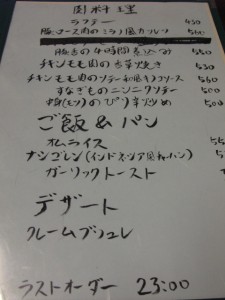 ラフテー 450
豚ロース肉のミラノ風カツレツ 560
豚舌の4時間煮込み 550
チキンもも肉の香草焼き 530
チキンもも肉のソテー和風キノコソース 580
すなぎものニンニクソテー 500
ピリ辛炒め 500
ご飯&パン
オムライス 550
ナシゴレン(インドネシア風チャーハン)
ガーリックトースト
デザート
クレームブリュレ
ラストオーダー 23:00